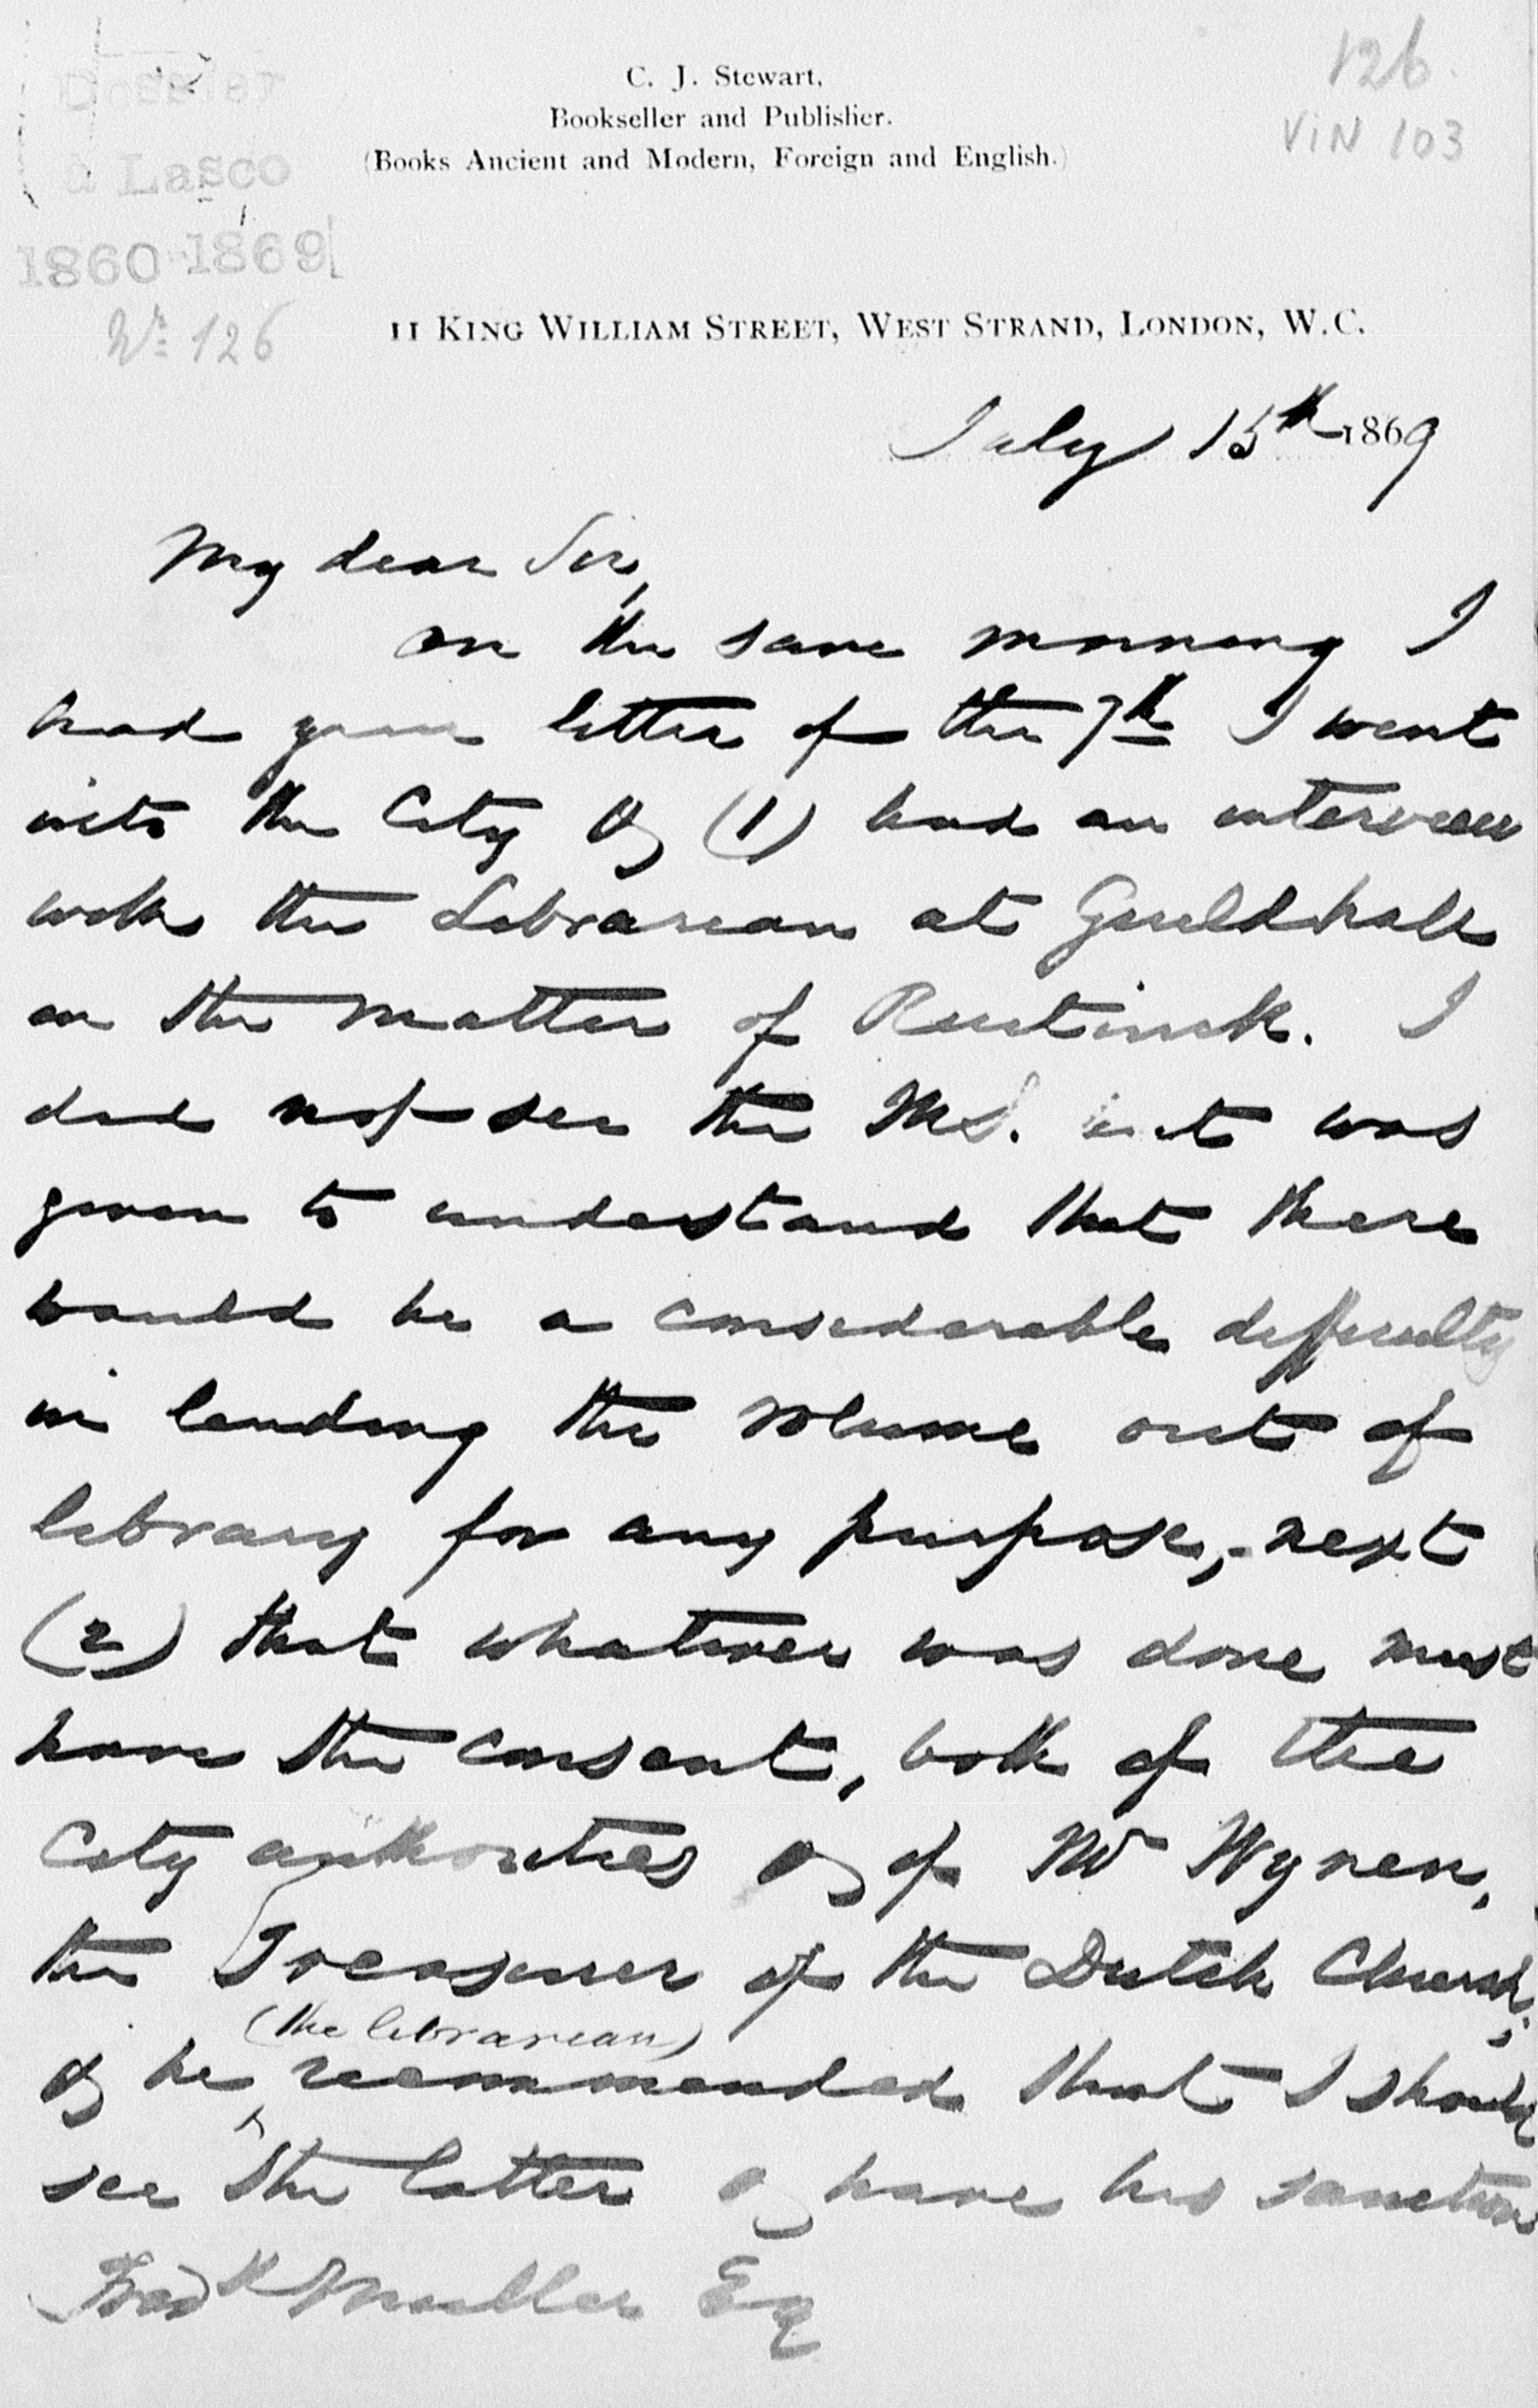 126
VIN 103
Dossier
a Lasco
1860-1869
Nr. 126
C. J. Stewart,
Bookseller and Publisher.
(Books Ancient and Modern, Foreign and English.)
11 King William Street, West Strand, London, W.C.
July 15th 1869
My dear Sir,
on the same morning I
had your letter of the 7th I went
into the City & (1) had an interview
with the Librarian at Guildhall
on the matter of Ruetinck. I
did not see the MS. but was
given to understand that there
would be a considerable difficulty
in lending the volume out of
library for any purpose,- next
(2) that whatever was done must
have the consent, both of the
City authorities & of Mr Wynen,
the Treasurer of the Dutch Church,
(the librarian)
& he recommended that I should
see the latter & have his sanction
Fredk Muller Esq